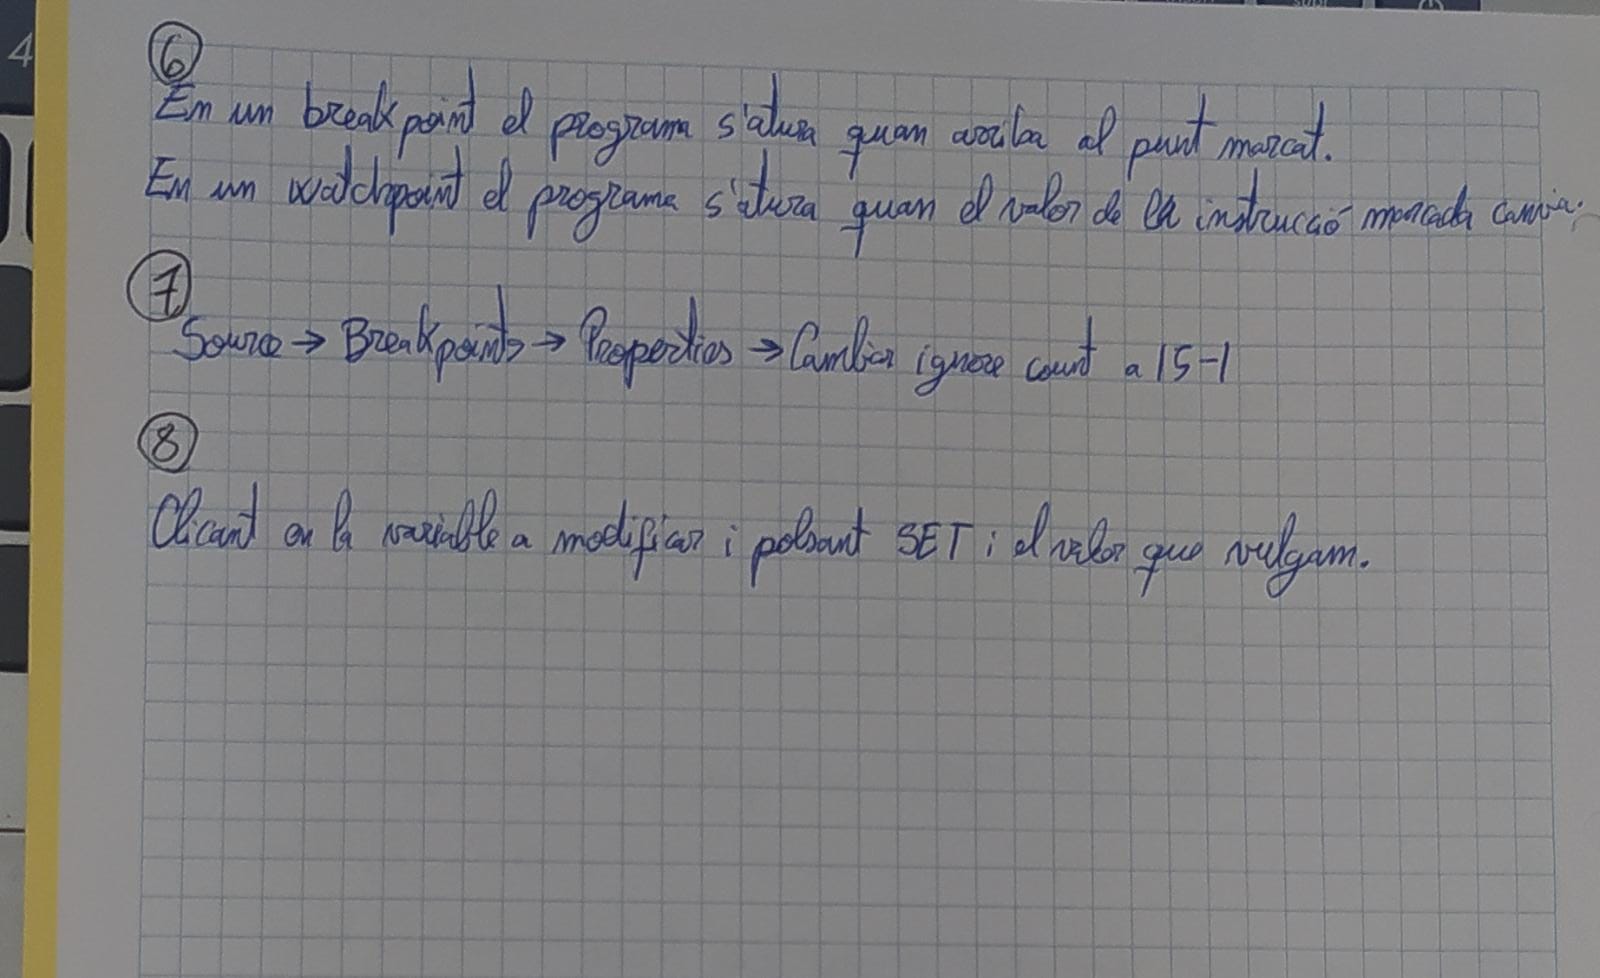 4
6
En un breakpoint el programa s'atura quan arriba al punt marcat.
En un watchpoint el programa s'atura quan el valor de la instrucció marcada canvia.
7
Source → Breakpoints → Properties → Cambiar ignore count a 15-1
8
Clicant en la variable a modificar i polsant SET i el valor que vulgam.